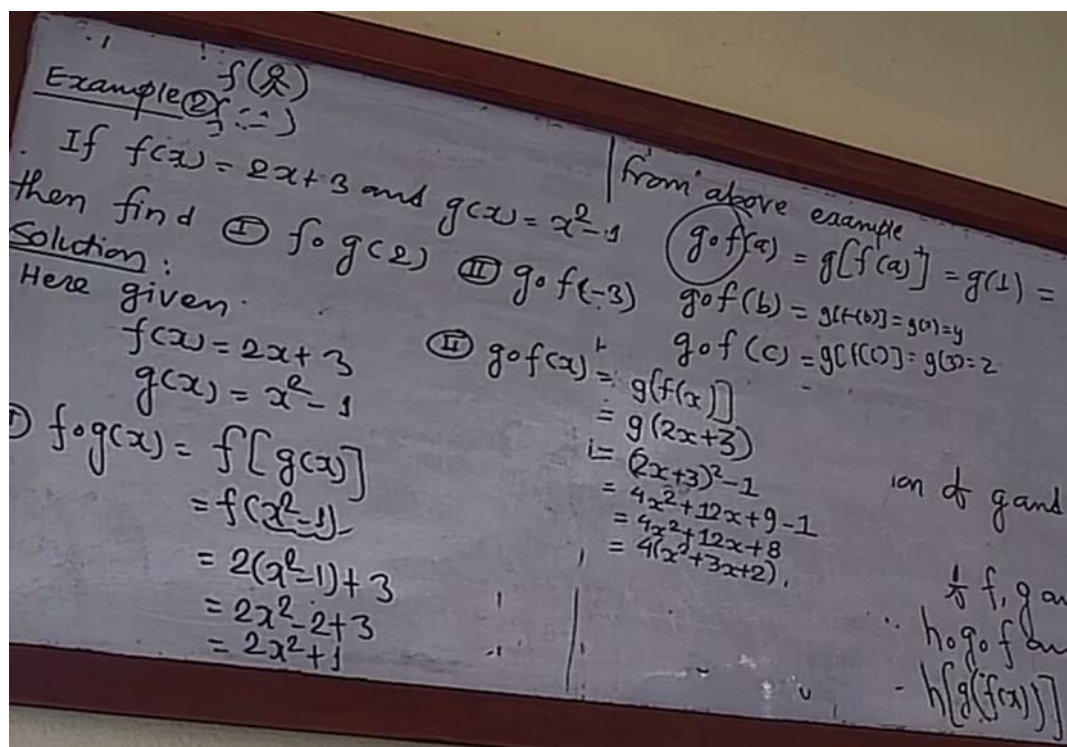 Example ②
If f(x) = 2x+3 and g(x) = x²-1
then find Ⓘ fog(2) Ⓘⓘ gof(-3)
Solution:
Here given.
f(x) = 2x+3
g(x) = x²-1
Ⓘ fog(x) = f[g(x)]
= f(x²-1)
= 2(x²-1)+3
= 2x²-2+3
= 2x²+1
Ⓘⓘ gof(x) = g(f(x)]
= g(2x+3)
= (2x+3)²-1
= 4x²+12x+9-1
= 4x²+12x+8
= 4(x²+3x+2).
from above example
gof(a) = g[f(a)] = g(1) =
gof(b) = g[f(b)] = g(2)=y
gof(c) = g[f(c)] = g(3)=2
ion of g and
of f, g an
hogof an
h[g(f(x))]